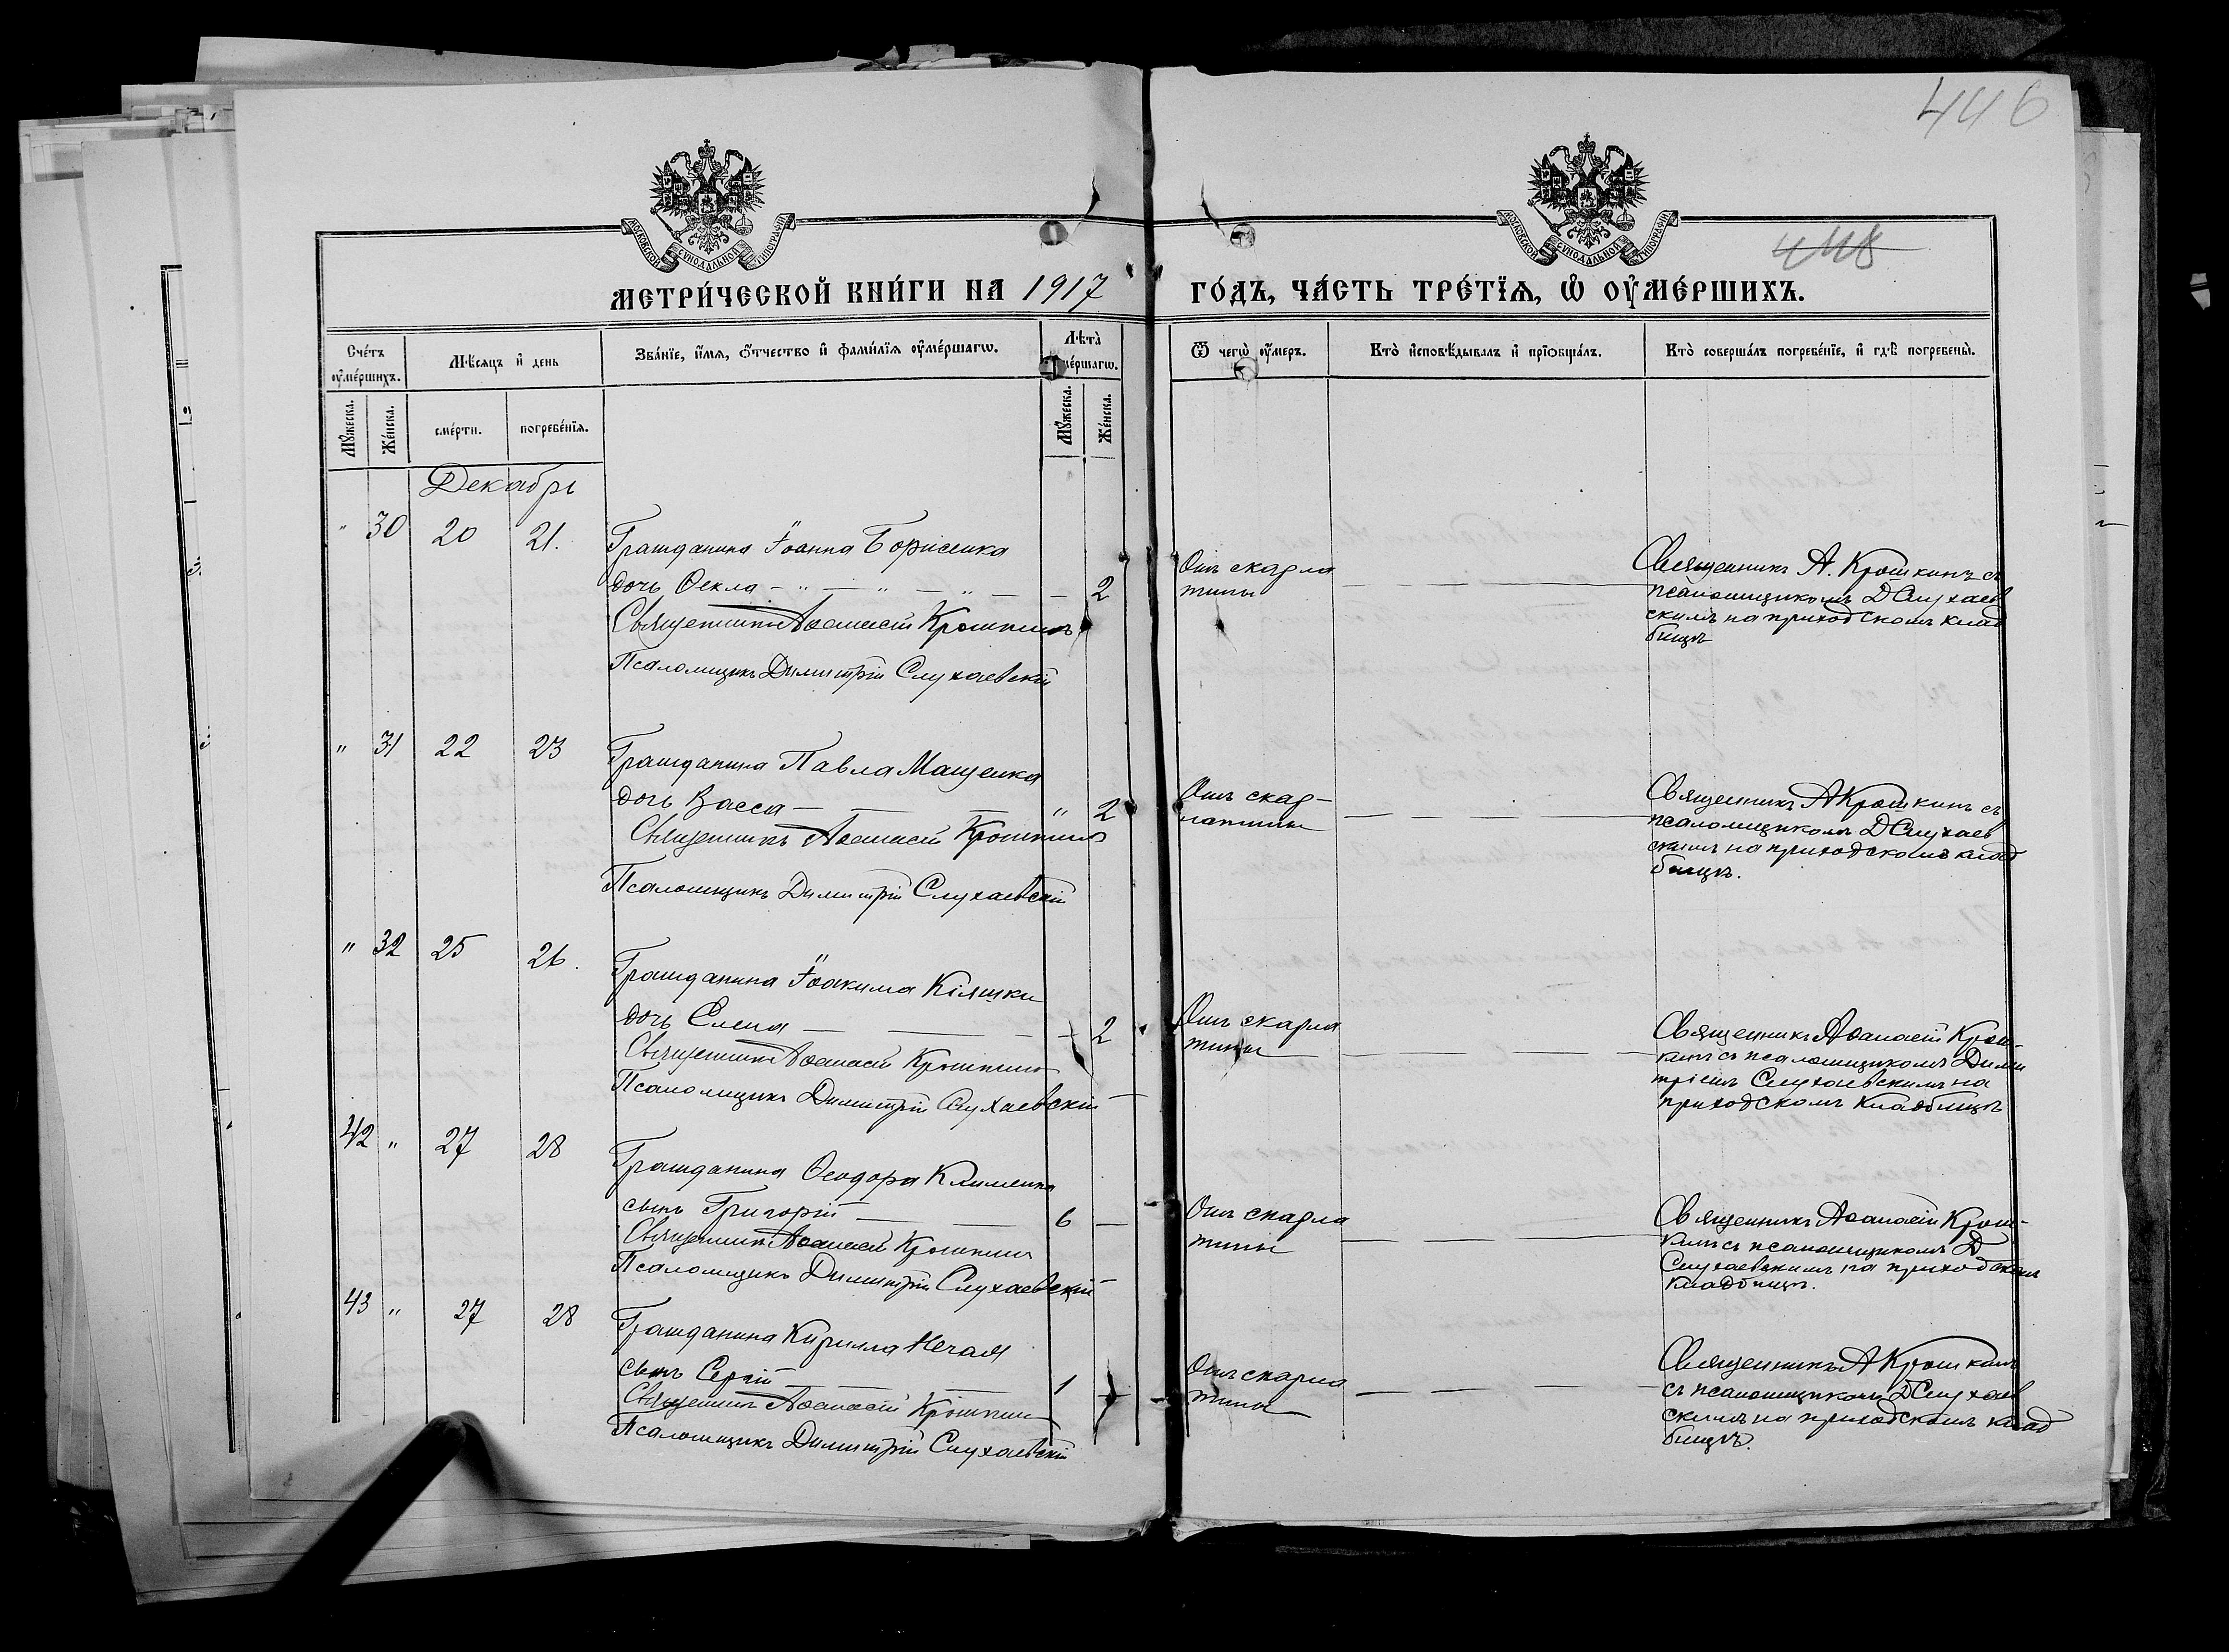 446
448
МОСКОВСКОЙ СѴНОДАЛЬНОЙ ТИПОГРАФІИ
МОСКОВСКОЙ СѴНОДАЛЬНОЙ ТИПОГРАФІИ
МЕТРИ́ЧЕСКОЙ КНИ́ГИ НА 1917 ГО́ДЪ, ЧА́СТЬ ТРЕ́ТЇѦ, Ѡ҆ ОУ҆МЕ́РШИХЪ.
Сче́тъ оу҆ме́ршихъ.
Мѣ́сяцъ и҆ день
Зва́нїе, и҆́мя, ѻ҆́тчество и҆ фами́лїя оу҆ме́ршагѡ.
Лѣта̀ оу҆ме́ршагѡ.
Ѿ чегѡ̀ оу҆́меръ.
Кто̀ и҆сповѣ́дывалъ и҆ прїѻбща́лъ.
Кто̀ соверша́лъ погребе́нїе, и҆ гдѣ̀ погребены̀.
Мꙋ́жеска.
Же́нска.
сме́рти.
погребе́нїя.
Мꙋ́жеска.
Же́нска.
Декабрь
" 30 20 21.
Гражданина Іоанна Борисенка
дочь Ѳекла - " - " - " - - 2
Священникъ Аѳанасій Крошкинъ
Псаломщикъ Димитрій Слухаевскій
Отъ скарла
тины
Священникъ А. Крошкинъ съ
псаломщикомъ Д Слухаев
скимъ на приходскомъ клад
бищѣ
" 31 22 23
Гражданина Павла Мащенка
дочь Васса - - - " 2
Священникъ Аѳанасій Крошкинъ
Псаломщикъ Димитрій Слухаевскій
Отъ скар-
латины
Священникъ А Крошкинъ съ
псаломщикомъ Д Слухаев
скимъ на приходскомъ клад
бищѣ.
" 32 25 26.
Гражданина Іоакима Кіяшки
дочь Елена - - - 2
Священникъ Аѳанасій Крошкинъ
Псаломщикъ Димитрій Слухаевскій
Отъ скарла
тины
Священникъ Аѳанасій Крош-
кинъ съ псаломщикомъ Дими
тріемъ Слухаевскимъ на
приходскомъ кладбищѣ
42 " 27 28
Гражданина Ѳеодора Клименка
сынъ Григорій - - 6 -
Священникъ Аѳанасій Крошкинъ
Псаломщикъ Димитрій Слухаевскій
Отъ скарла
тины
Священникъ Аѳанасій Крош-
кинъ съ псаломщикомъ Д
Слухаевскимъ на приходскомъ
кладбищѣ.
43 " 27 28
Гражданина Кирилла Нечая
сынъ Сергій - - - 1 -
Священникъ Аѳанасій Крошкинъ
Псаломщикъ Димитрій Слухаевскій
Отъ скарла
тины
Священникъ А Крошкинъ
съ псаломщикомъ Д Слухаев
скимъ на приходскомъ клад
бищѣ.